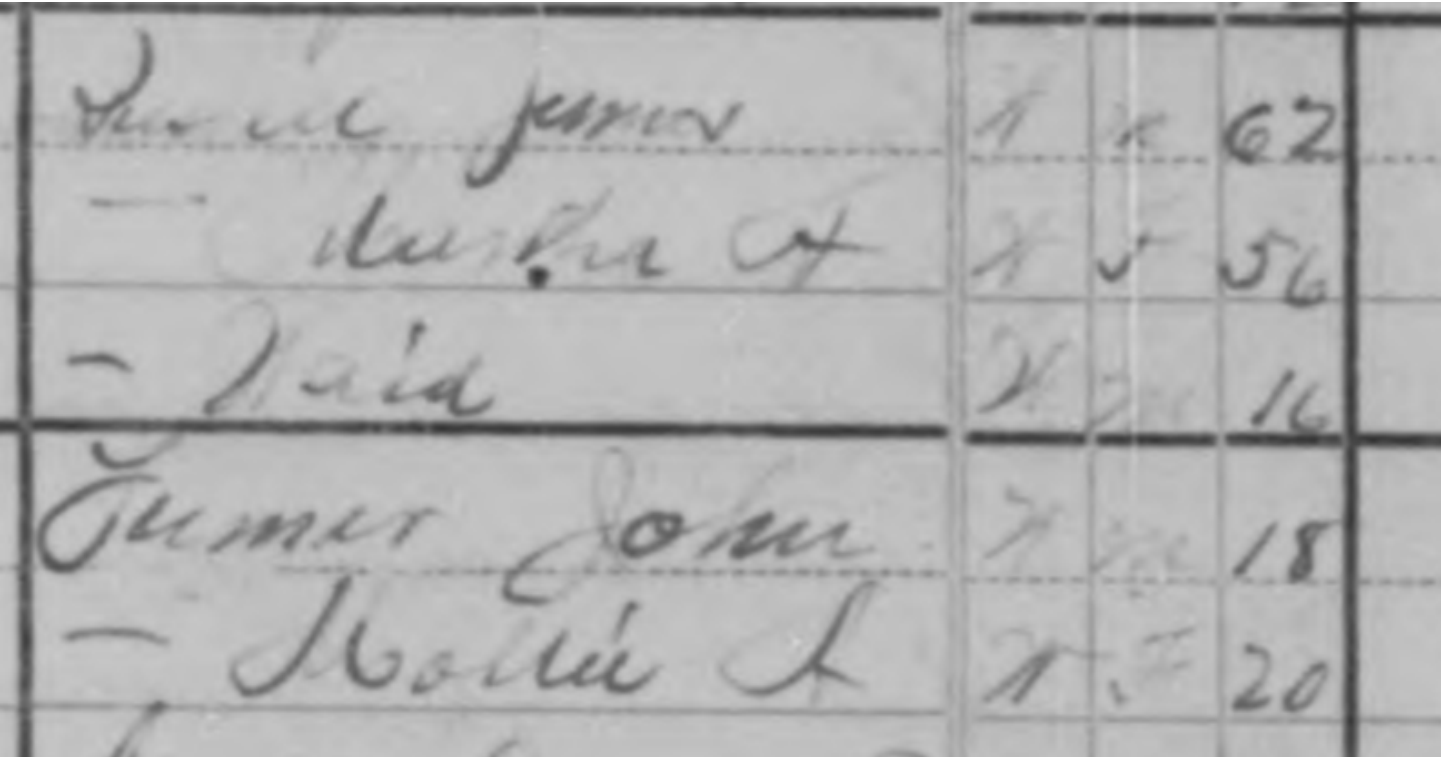 James W M 62
— Martha A W F 56
— W M 16
Turner John W M 18
— Mollie A W F 20